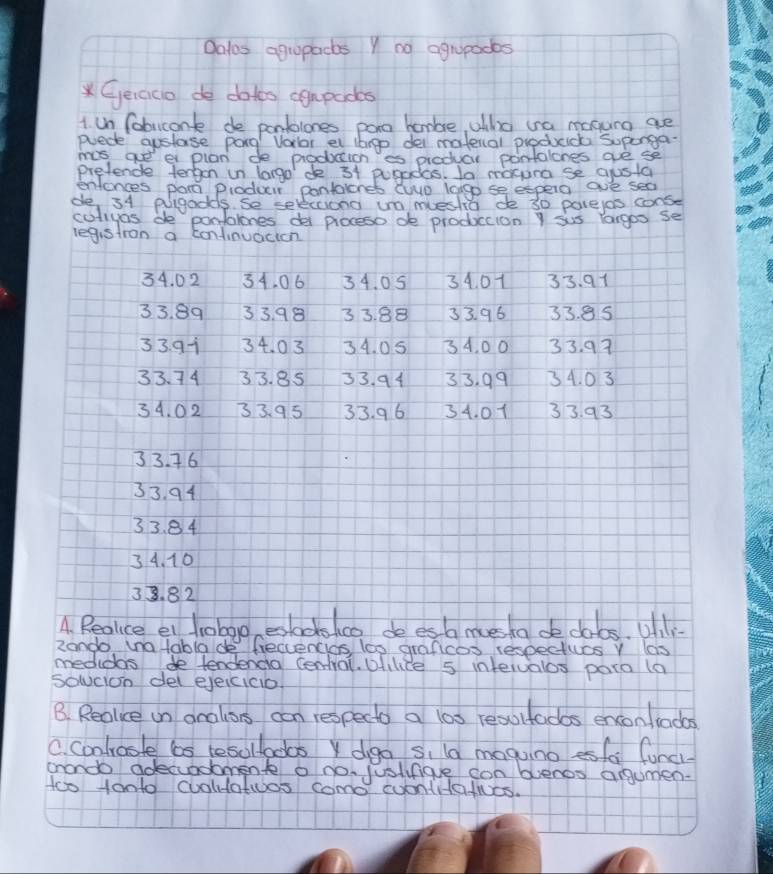 Datos agrupados y no agrupados
* Ejercicio de datos agrupados
1. Un fabricante de pantalones para hombre, utiliza una maquina que
puede ajustarse para variar el largo del material producido. Suponga-
mos que el plan de producción es producir pantalones que se
pretende tengan un largo de 34 pulgadas. la maquina se ajusta
entonces para producir pantalones cuyo largo se espera que sea
de, 34 pulgadas. Se selecciona una muestra de 30 parejas conse
cutivas de pantalones del proceso de producción y sus largos se
registran a continuación
34.02 34.06 34.05 34.01 33.91
33.89 33.98 33.88 33.96 33.85
33.91 34.03 34.05 34.00 33.97
33.74 33.85 33.94 33.99 34.03
34.02 33.95 33.96 34.01 33.93
33.76
33.94
33.84
34.10
33.82
A. Realice el trabajo estadístico de esta muestra de datos. Utili-
zando una tabla de frecuencias, los graficos respectivos y las
medidas de tendencia central. Utilice 5 intervalos para la
solución del ejercicio.
B. Realice un analisis con respecto a los resultados encontrados.
C. Contraste los resultados y diga si la maquina está funci-
onando adecuadamente o no. Justifique con buenos argumen-
tos tanto cualitativos como cuantitativos.